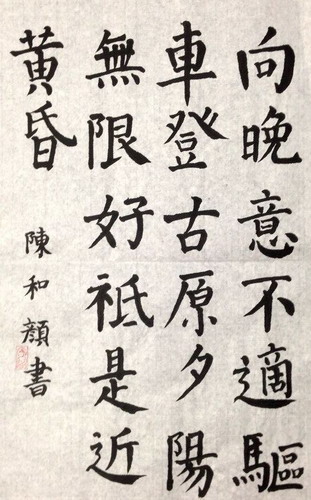 向晚意不適驅
車登古原夕陽
無限好祗是近
黃昏
陳和顏書